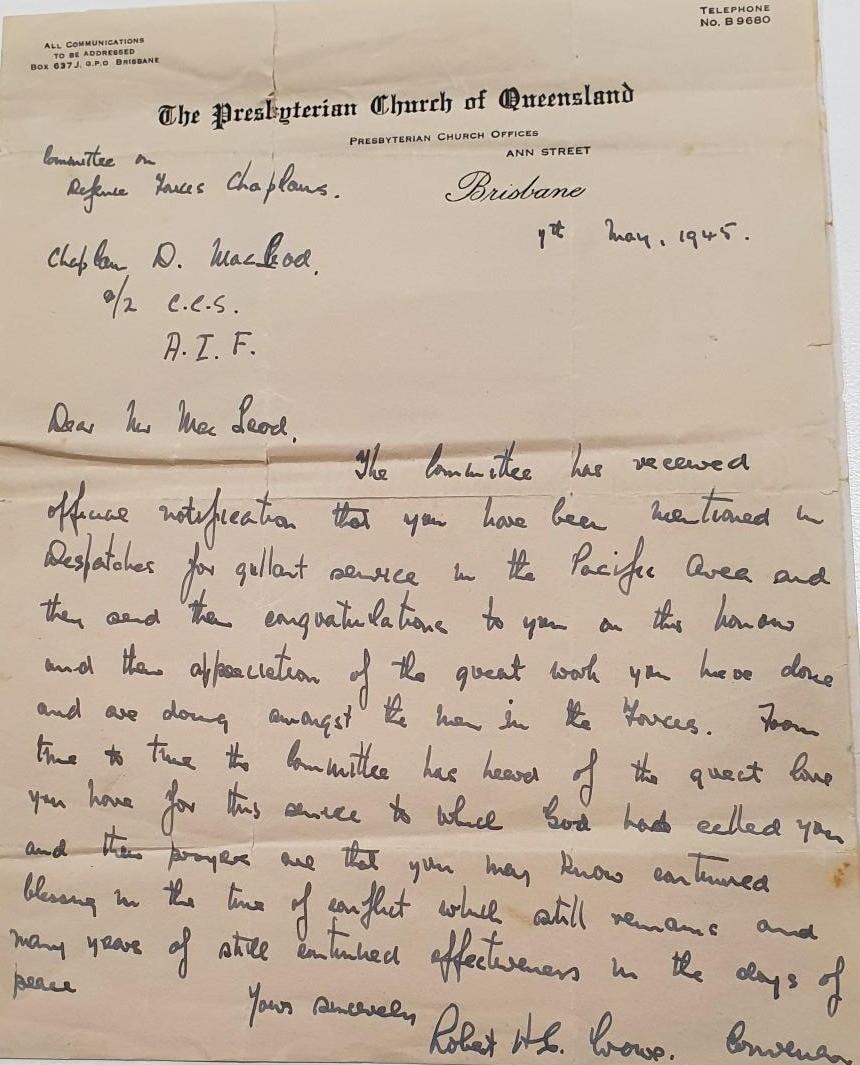 ALL COMMUNICATIONS
TO BE ADDRESSED
BOX 637J, G.P.O BRISBANE
TELEPHONE
No. B 9680
The Presbyterian Church of Queensland
PRESBYTERIAN CHURCH OFFICES
ANN STREET
Brisbane
Committee on
Defence Forces Chaplains.
May, 1945.
Chaplain D. MacLeod,
2/2 C.C.S.
A.I.F.
Dear Mr MacLeod,
The Committee has received
official notification that you have been mentioned in
Despatches for gallant service in the Pacific Area and
they send their congratulations to you on this honour
and their appreciation of the great work you have done
and are doing amongst the men in the Forces. From
time to time the Committee has heard of the great love
you have for this service to which God has called you
and their prayers are that you may know continued
blessing in the time of conflict which still remains and
many years of still continued effectiveness in the days of
peace
Yours sincerely
Robert H. Crowe. Convener